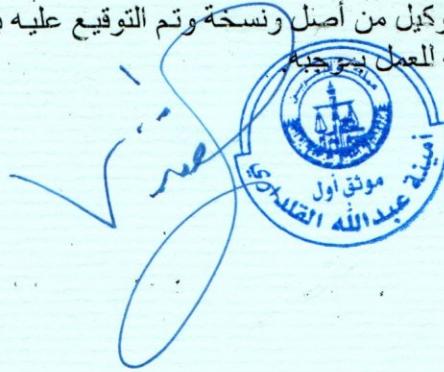 وكيل من أصل ونسخة وتم التوقيع عليه
المعمل بموجبه
موثق أول
أمينة عبدالله